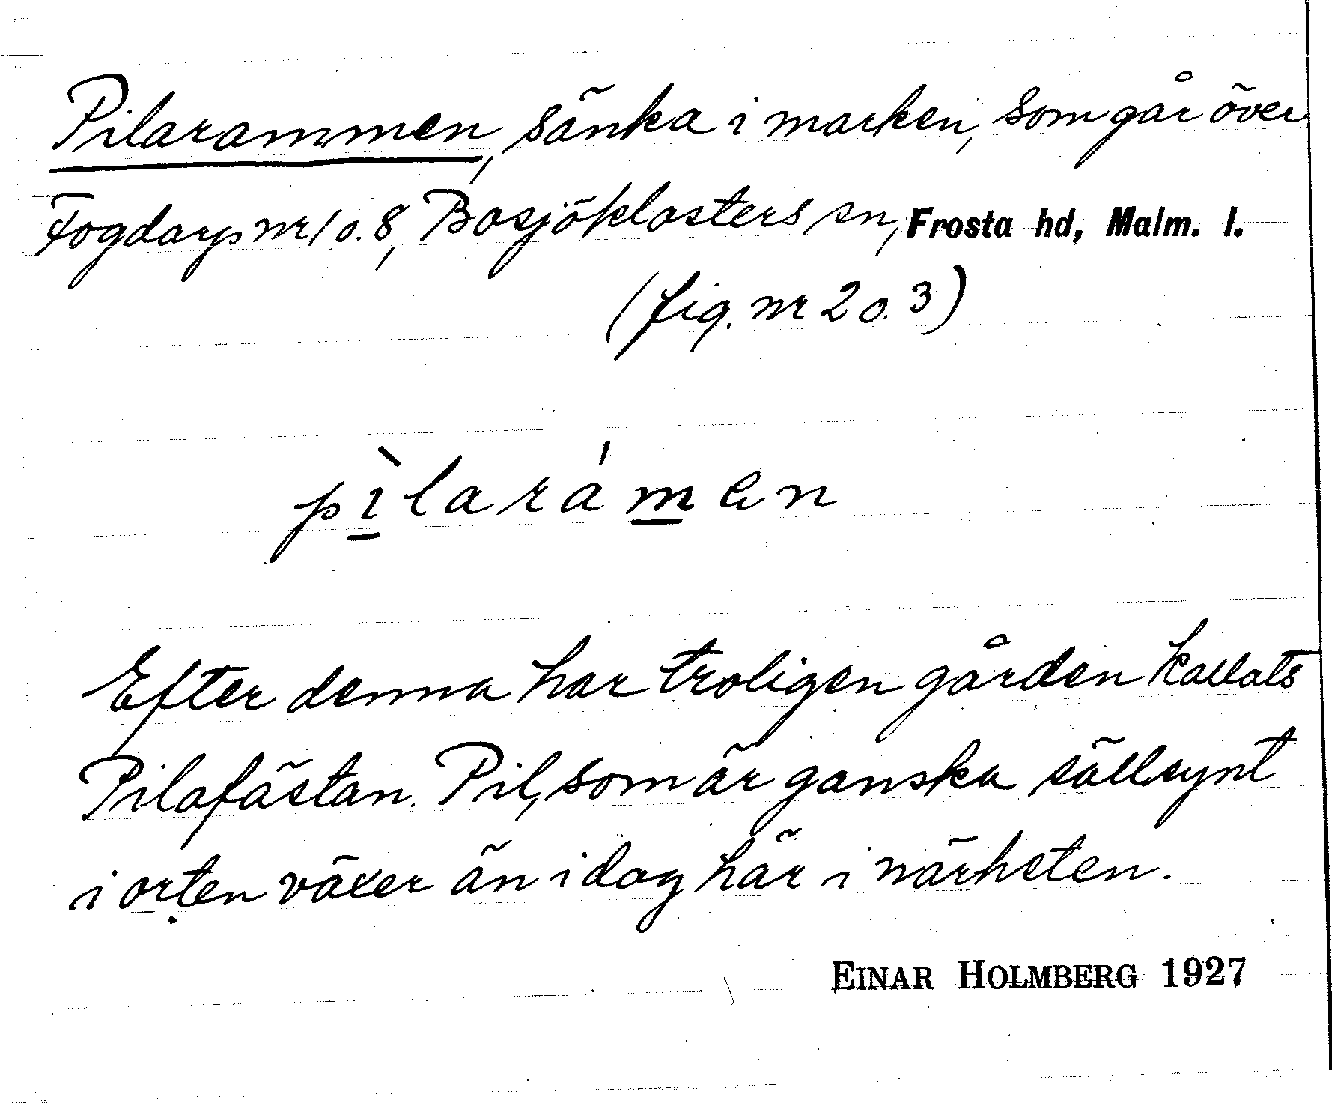 Pilarammen, sänka i marken, som går över
Fogdarp nr 1 o. 8, Bosjöklosters sn, Frosta hd, Malm. l.
(fig. nr 2 o. 3)
pìlarámen
Efter denna har troligen gården kallats
Pilafästan. Pil, som är ganska sällsynt
i orten växer än idag här i närheten.
EINAR HOLMBERG 1927